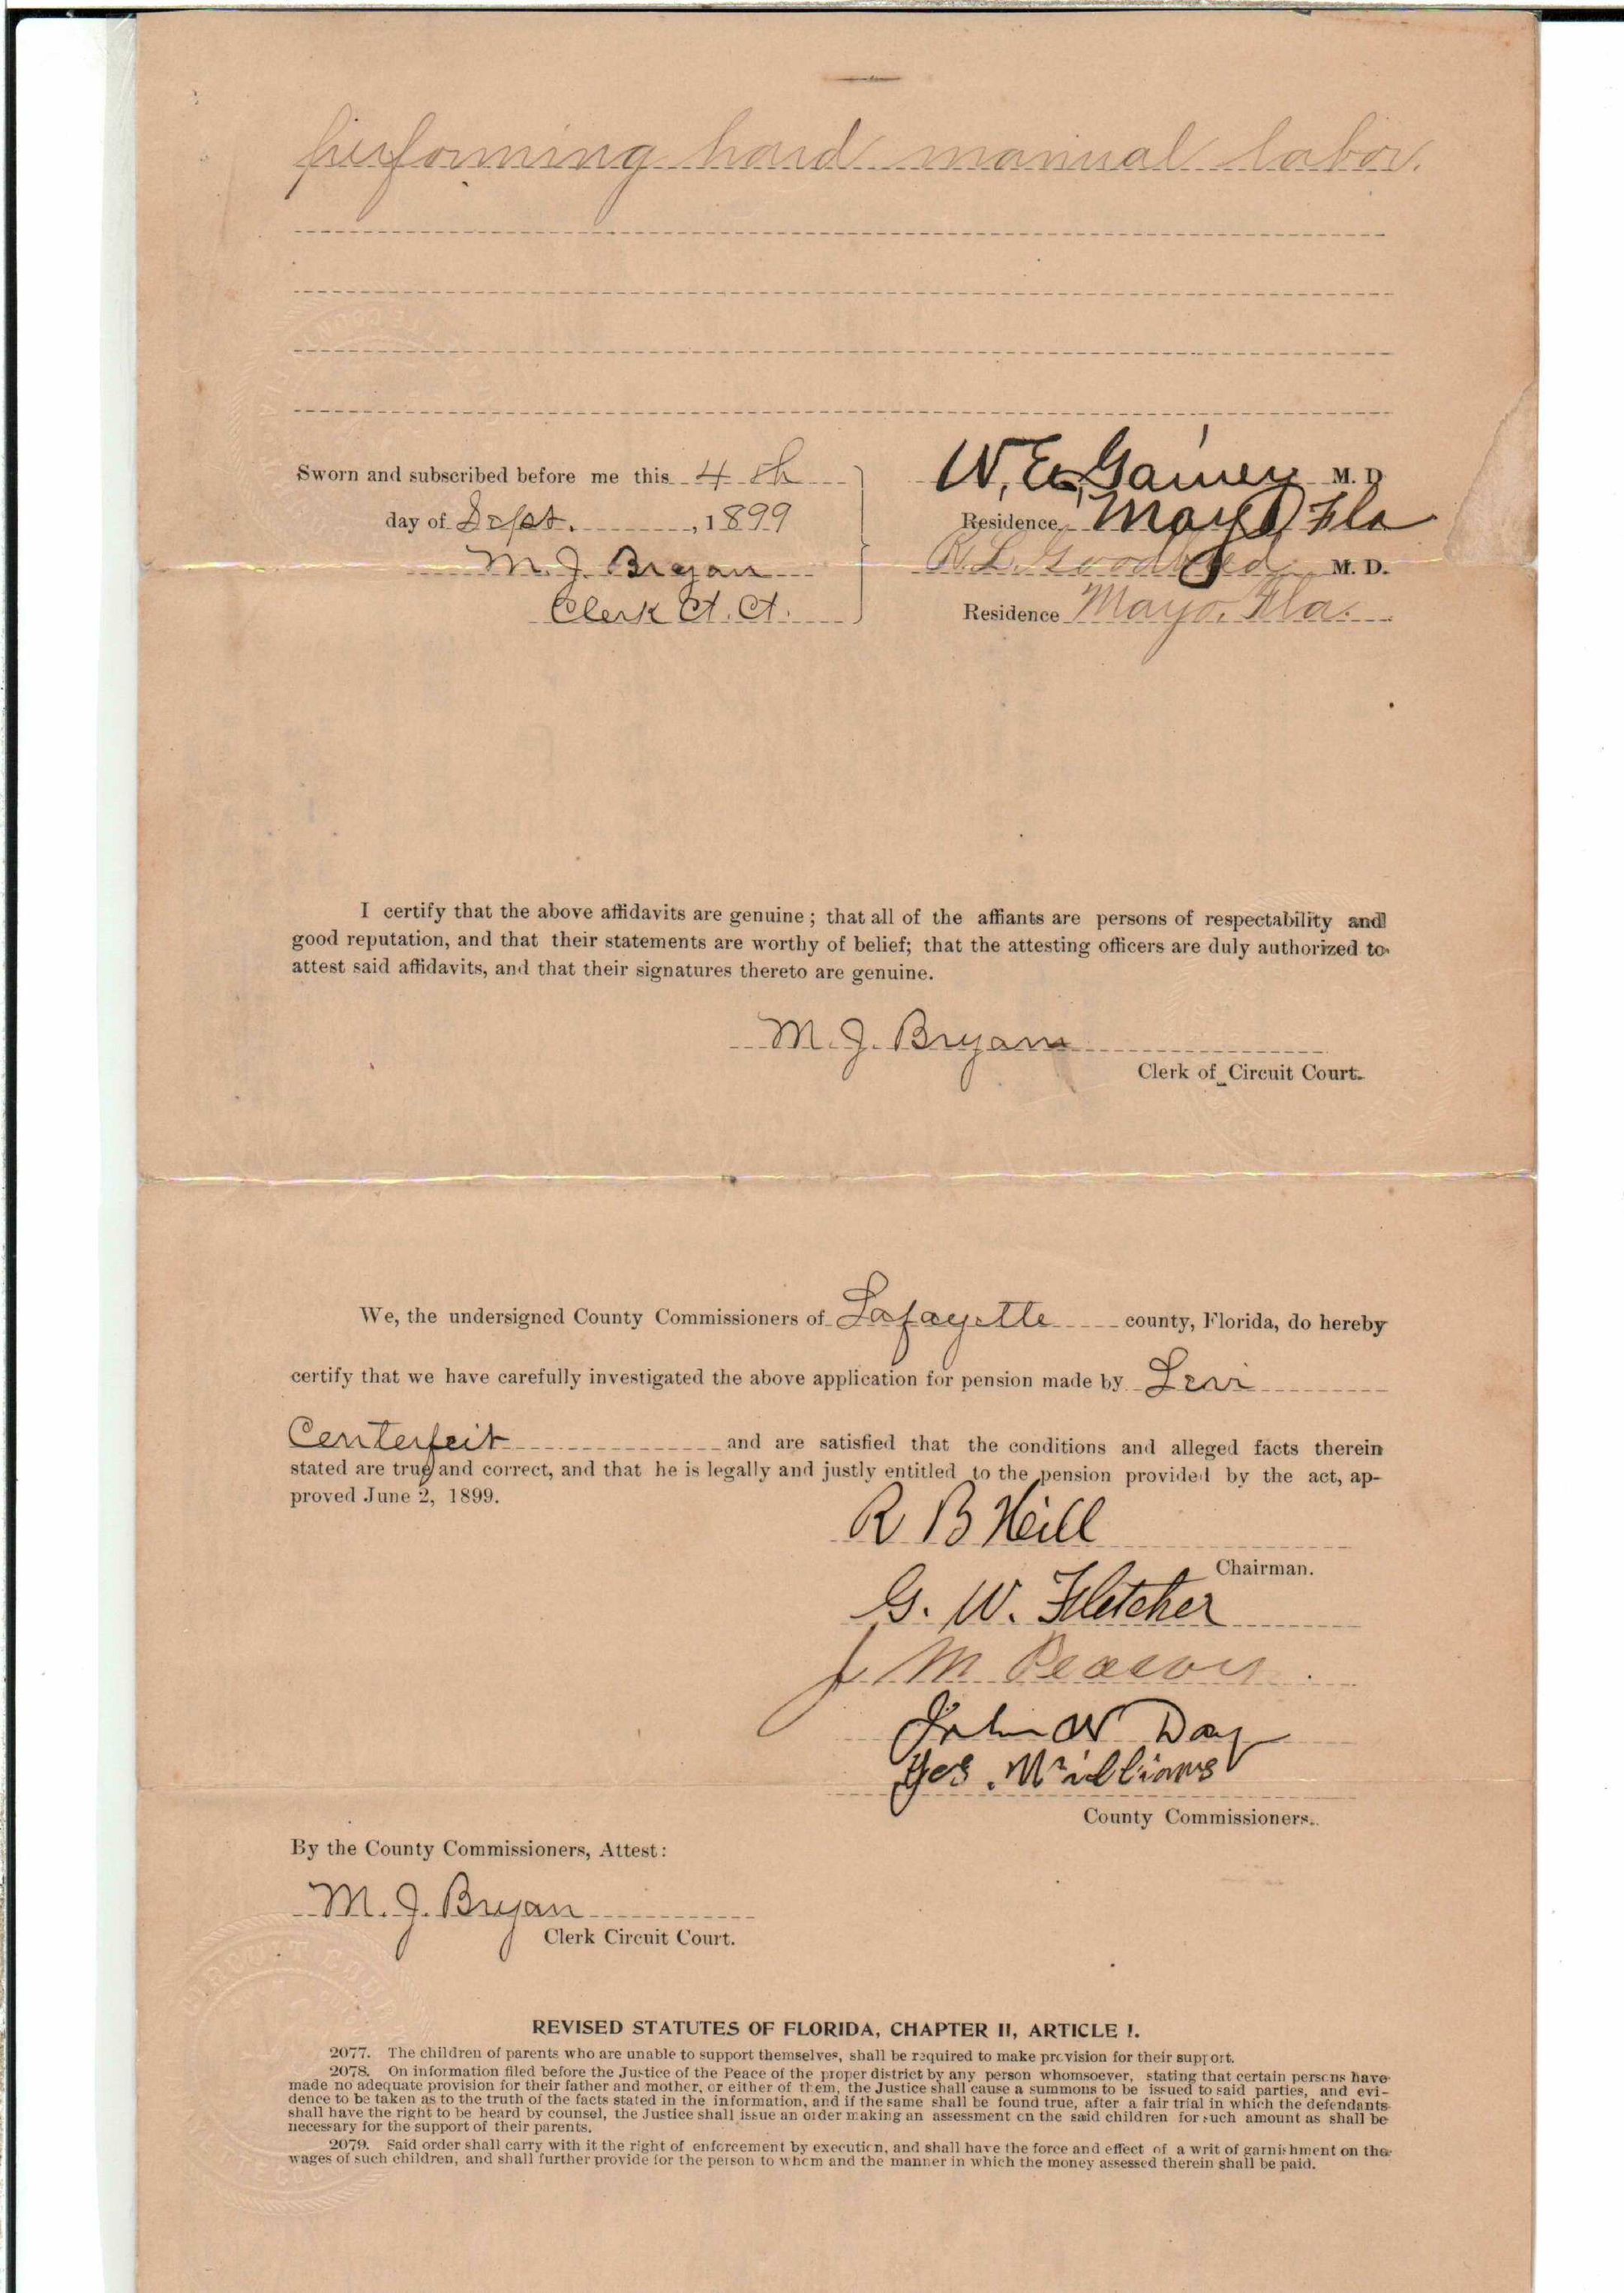 performing hard manual labor.
Sworn and subscribed before me this 4th
day of Sept. , 1899
M. J. Bryan
Clerk Ct. Ct.
W. E. Gainey M. D
Residence Mayo Fla
R. L. M. D.
Residence Mayo, Fla.
I certify that the above affidavits are genuine; that all of the affiants are persons of respectability and
good reputation, and that their statements are worthy of belief; that the attesting officers are duly authorized to
attest said affidavits, and that their signatures thereto are genuine.
M. J. Bryan
Clerk of Circuit Court.
We, the undersigned County Commissioners of Lafayette county, Florida, do hereby
certify that we have carefully investigated the above application for pension made by Levi
Centerfeit and are satisfied that the conditions and alleged facts therein
stated are true and correct, and that he is legally and justly entitled to the pension provided by the act, ap-
proved June 2, 1899.
R B Hill
Chairman.
G. W. Fletcher
J M
John W Day
Williams
County Commissioners.
By the County Commissioners, Attest:
M. J. Bryan
Clerk Circuit Court.
CIRCUIT COURT
REVISED STATUTES OF FLORIDA, CHAPTER II, ARTICLE I.
2077. The children of parents who are unable to support themselves, shall be required to make provision for their support.
2078. On information filed before the Justice of the Peace of the proper district by any person whomsoever, stating that certain persons have
made no adequate provision for their father and mother, or either of them, the Justice shall cause a summons to be issued to said parties, and evi-
dence to be taken as to the truth of the facts stated in the information, and if the same shall be found true, after a fair trial in which the defendants
shall have the right to be heard by counsel, the Justice shall issue an order making an assessment on the said children for such amount as shall be
necessary for the support of their parents.
2079. Said order shall carry with it the right of enforcement by execution, and shall have the force and effect of a writ of garnishment on the
wages of such children, and shall further provide for the person to whom and the manner in which the money assessed therein shall be paid.